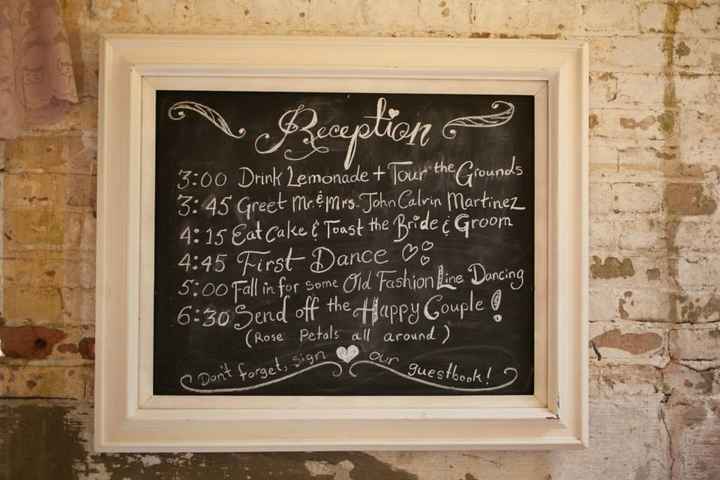 Reception
3:00 Drink Lemonade + Tour the Grounds
3:45 Greet Mr. & Mrs. John Calvin Martinez
4:15 Eat Cake & Toast the Bride & Groom
4:45 First Dance
5:00 Fall in for some Old Fashion Line Dancing
6:30 Send off the Happy Couple!
(Rose Petals all around)
Don't forget, sign our guestbook!